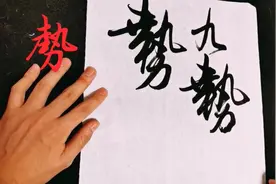 勢
九勢
勢